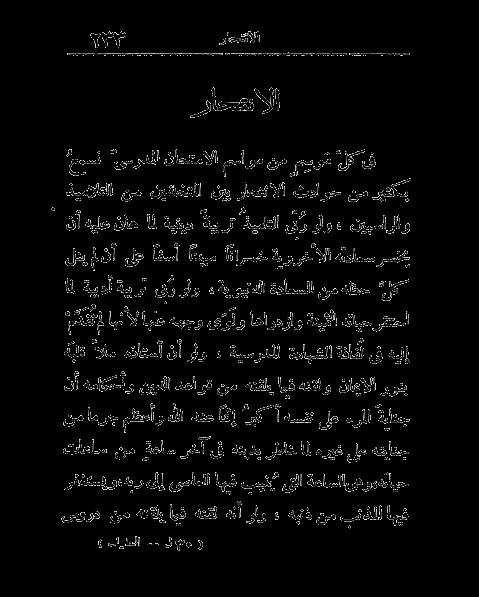 ٢٣٣ الانتحار
الانتحار
فى كلّ مَوسِمٍ من مواسم الامتحان المدرسىّ نسمعُ
بكثير من حوادث الانتحار بين المتخلفين من التلاميذ
والراسبين ، ولو رُبِّى التلميذُ تربيةً دينيةً لما هان عليه أن
يخسر سعادته الأخروية خسرانًا مبينًا أسفًا على أن لم ينل
كلّ حظه من السعادة الدنيوية ، ولو رُبِّى تربيةً أدبيةً لما
احتقر حياته الثمينة وازدراها ولوى وجهه عنها لأنها لم تُقدَّمْ
إليه فى لفافة الشهادة المدرسية ، ولو أن أستاذه ملأ قلبه
بنور الايمان ولقنه فيما يلقنه من قواعد الدين وأحكامه أن
جنايةَ المرء على نفسه أكبرُ إثمًا عند الله وأعظم جرما من
جنايته على غيره لما خاطر بدينه فى آخر ساعةٍ من ساعات
حياته وهى الساعة التى يُنيب فيها العاصى إلى ربه ويستغفر
فيها المذنب من ذنبه ، ولو أنه لقنه فيما يلقنه من دروس
( ٣٠ ل -- النظرات )